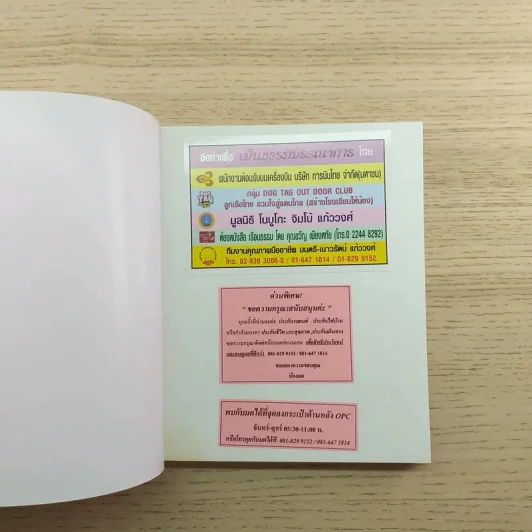 จัดทำเพื่อ เป็นธรรมบรรณาการ โดย
พนักงานต้อนรับบนเครื่องบิน บริษัท การบินไทย จำกัด(มหาชน)
กลุ่ม DOG TAG OUT DOOR CLUB
ลูกเรือไทย รวมใจสู่แดนไกล (สร้างโรงเรียนให้น้อง)
มูลนิธิ โนบูโกะ จิมโบ้ แก้ววงศ์
ห้องหนังสือ เรือนธรรม โดย คุณขวัญ เพียงหทัย (โทร.0 2244 8292)
ทีมงานคุณภาพมืออาชีพ มนตรี-เนาวรัตน์ แก้ววงศ์
โทร. 02-930 3006-8 / 01-647 1814 / 01-829 9152
ด่วนพิเศษ!
" ขอความกรุณาสนับสนุนค่ะ "
081-829 9152 / 081-647 1814
น้องมด
พบกับมดได้ที่จุดลงกระเป๋าด้านหลัง OPC
จันทร์-ศุกร์ 05:30-11:00 น.
หรือโทรคุยกับมดได้ที่ 081-829 9152 / 081-647 1814